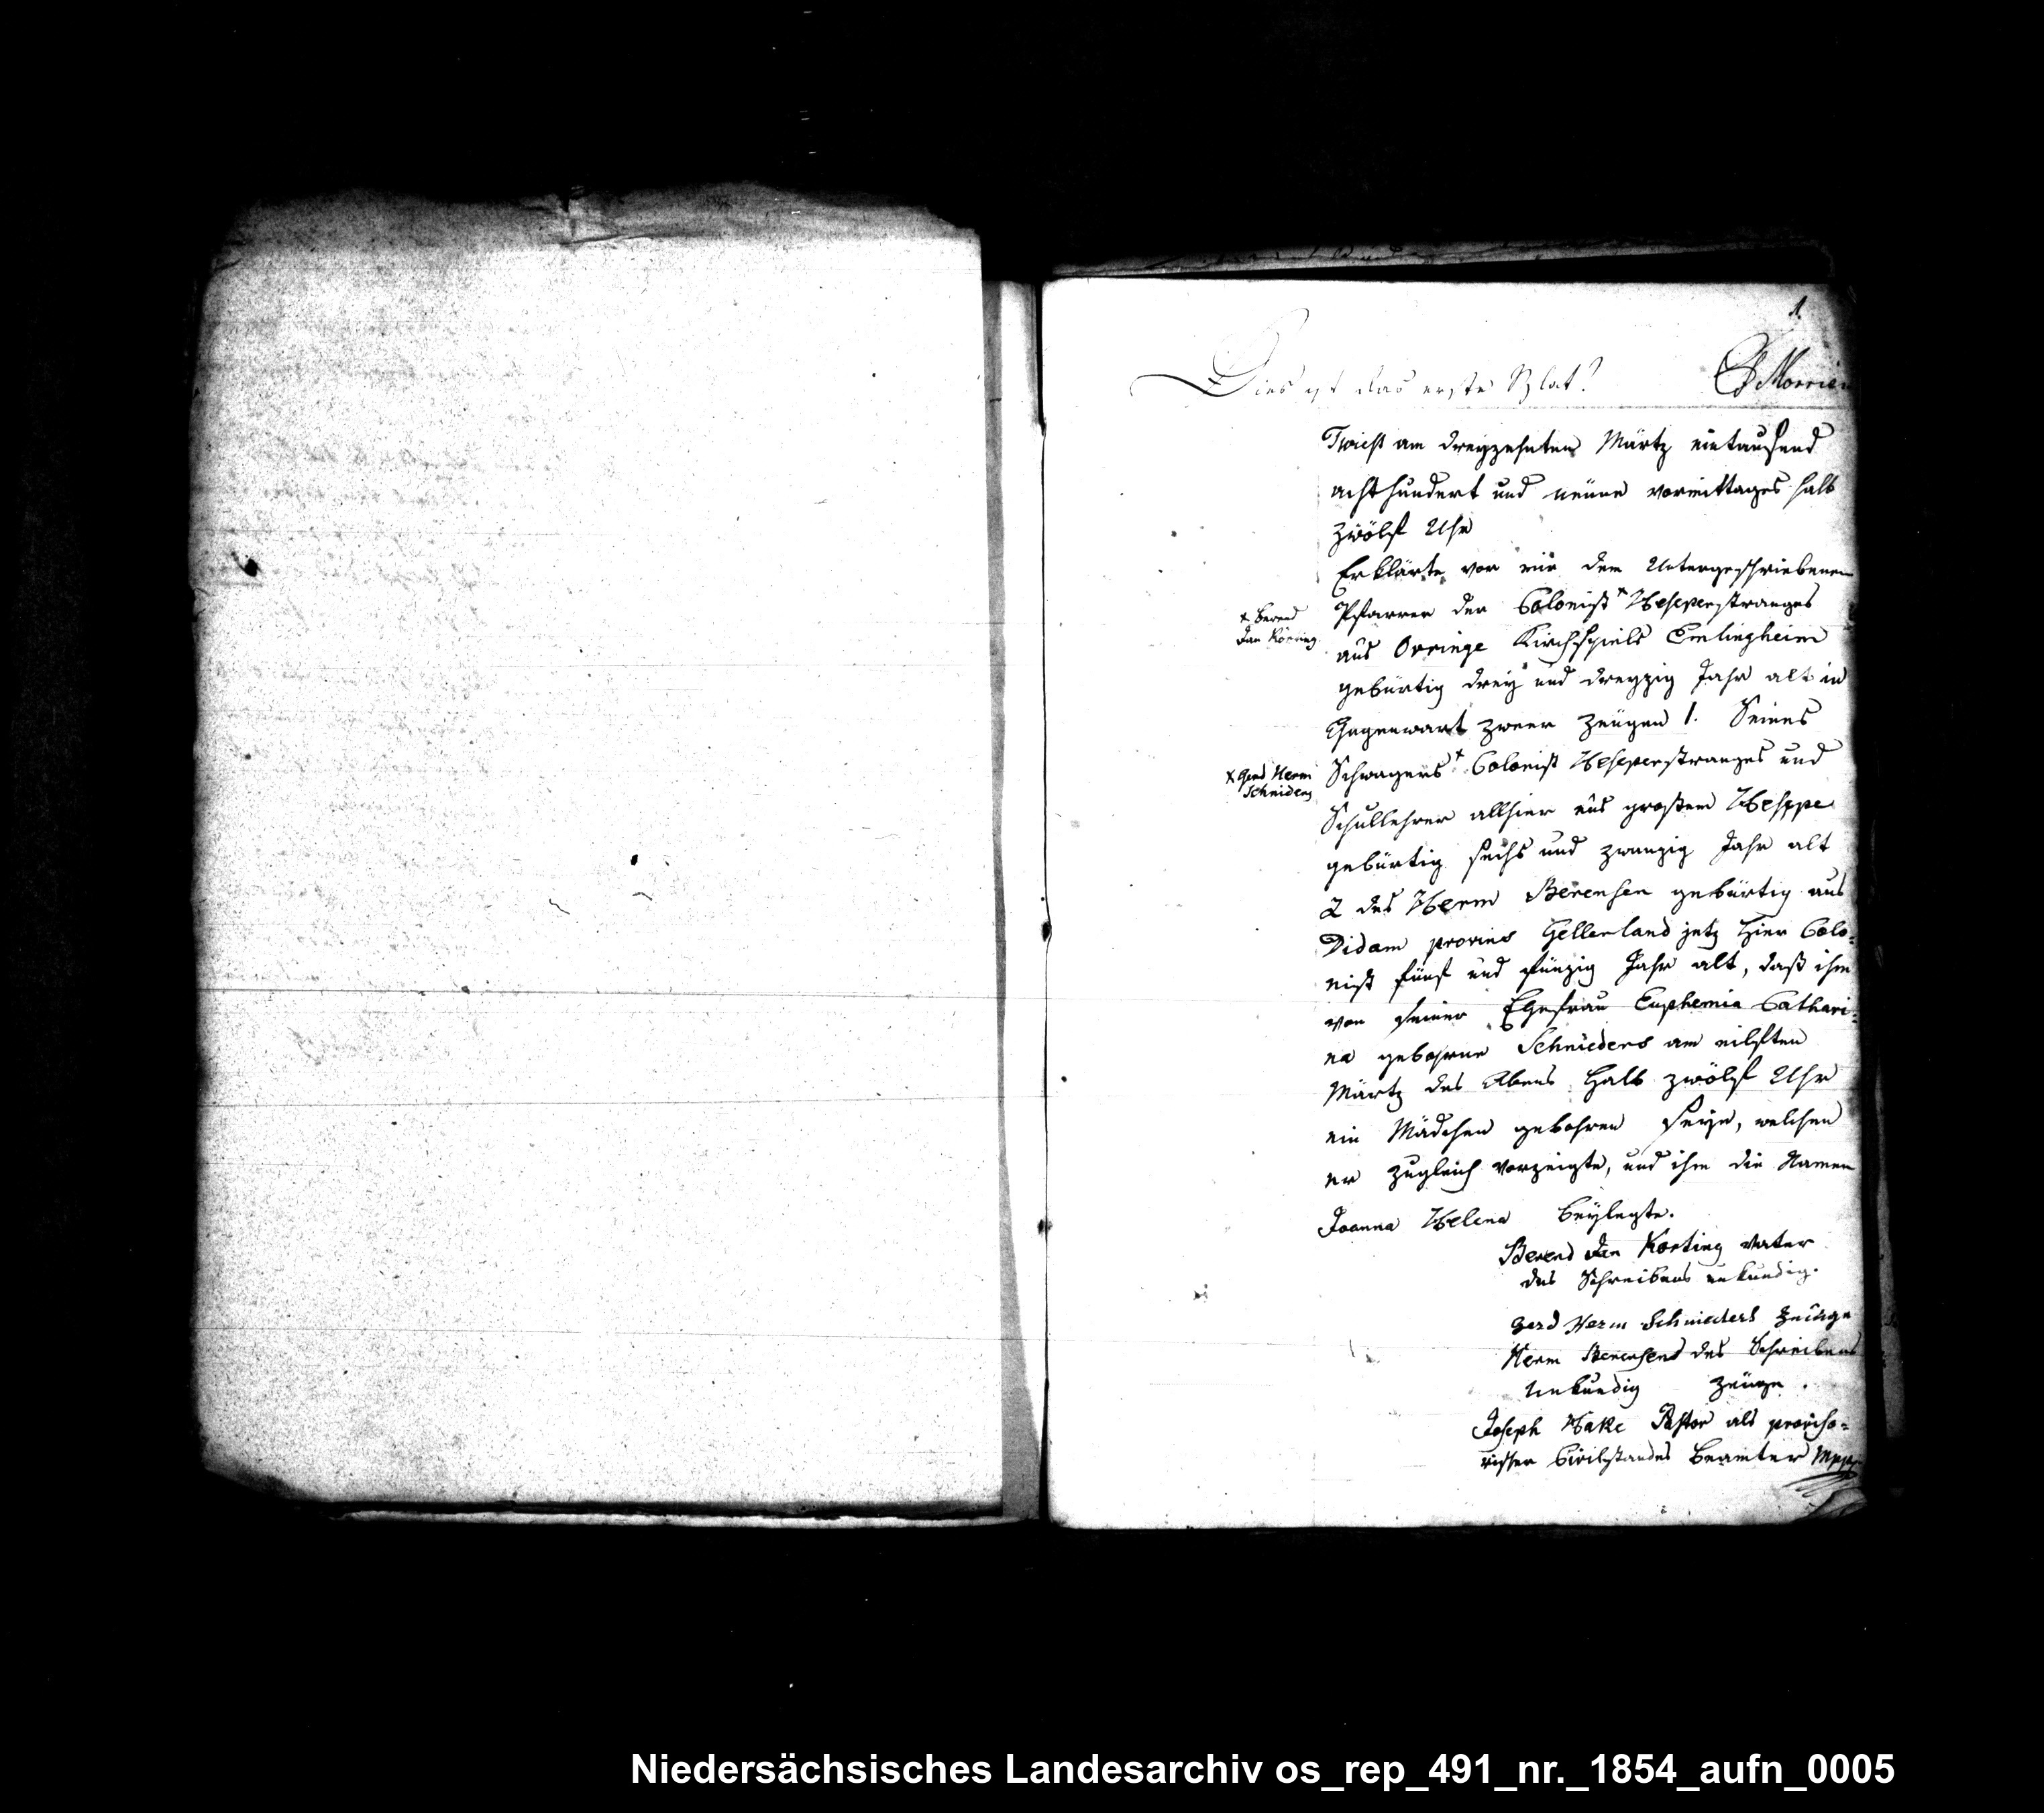 1.
Dies ist das erste Blat?
Morrien
Twist am dreyzehnten Märtz eintausend
achthundert und neüne vormittages halb
zwölf Uhr
Erklärte vor mir dem Untergeschriebenen
Pfarrer der Colonist x Hesepenstranges
x Berend
Jan Körting
aus Orringe Kirchspiels Emlingheim
gebürtig drey und dreyzig Jahr alt in
Gegenwart zweer Zeügen 1. Seines
Schwagers x Colonist Hesepenstranges und
x Gerd Herm
Schnieders
Schullehrer allhier aus grossem Hesppe
gebürtig sechs und zwanzig Jahr alt
2 des Herm Berensen gebürtig aus
Didam provins Gellerland jetz hier Colo=
nist fünf und fünzig Jahr alt, daß ihm
von seiner Ehefrau Euphemia Cathari=
na gebohrne Schnieders am eilften
Märtz des Abens halb zwölf Uhr
ein Mädchen gebohren seye, welchen
er zugleich vorzeigte, und ihm die Namen
Joanna Helena beÿlegte.
Berend Jan Korting Vater
des Schreibens unkundig.
Gerd Herm Schnieders Zeüge
Herm Berensend des Schreibens
unkundig Zeüge.
Joseph Hake Pastor als proviso=
rischer Civilstandes Beamter Mppr
Niedersächsisches Landesarchiv os_rep_491_nr._1854_aufn_0005